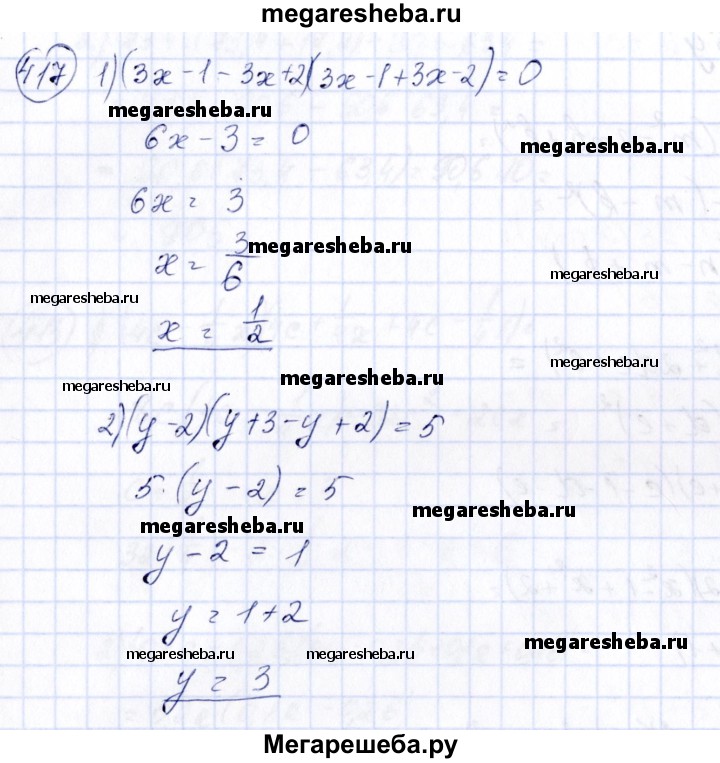 megaresheba.ru
417 1) (3x - 1 - 3x + 2)(3x - 1 + 3x - 2) = 0
megaresheba.ru
6x - 3 = 0
6x = 3
megaresheba.ru
x = 3/6
megaresheba.ru
megaresheba.ru
x = 1/2
megaresheba.ru
megaresheba.ru
megaresheba.ru
2) (y - 2)(y + 3 - y + 2) = 5
5 · (y - 2) = 5
megaresheba.ru
megaresheba.ru
y - 2 = 1
y = 1 + 2
megaresheba.ru
megaresheba.ru megaresheba.ru
y = 3
Мегарешеба.ру